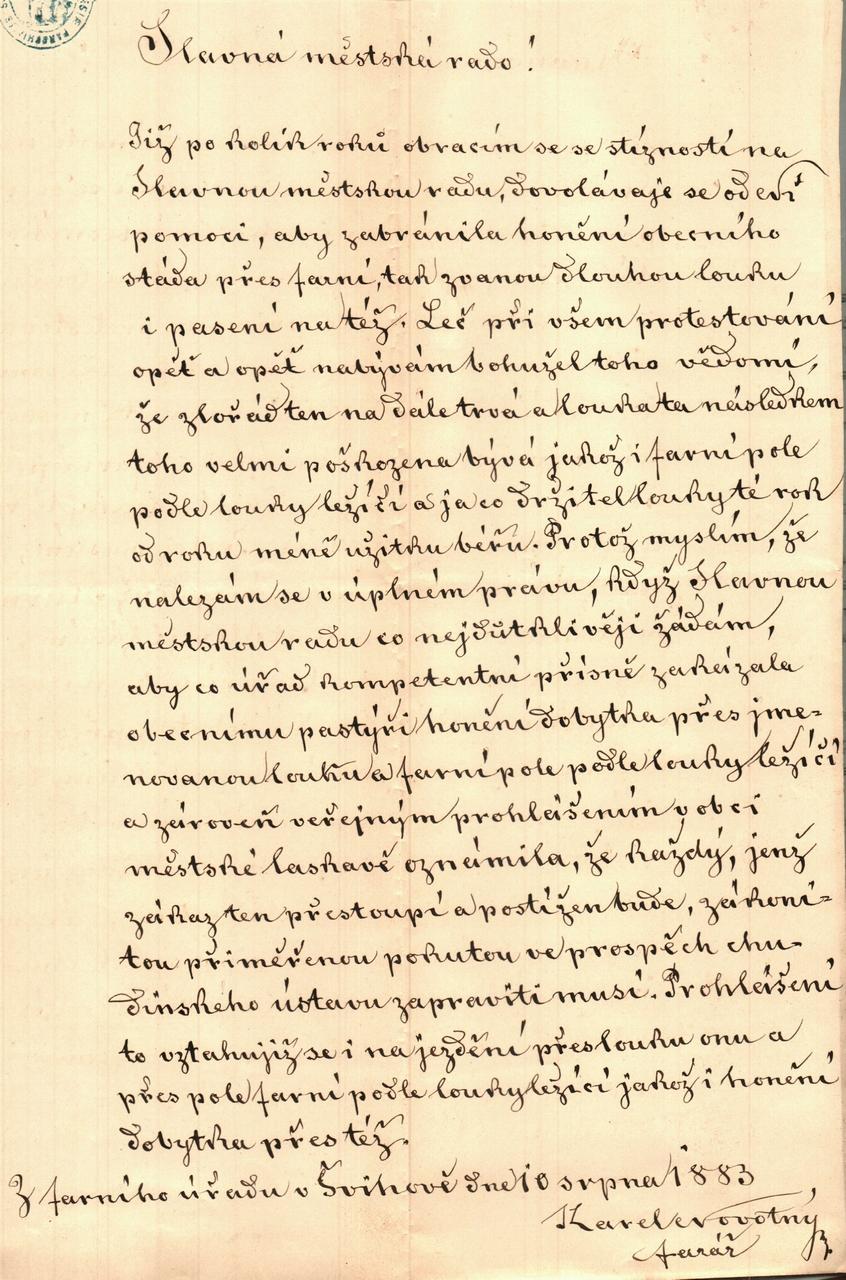 Slavná městská rado!
Již po kolik roků obracím se se stížností na
Slavnou městskou radu, dovolávaje se od ení
pomoci, aby zabránila honění obecního
stáda přes farní, tak zvanou dlouhou louku
i pasení na též. Leč při všem protestování
opět a opět nabývám bohužel toho vědomí,
že zlořád ten na dále trvá a louka ta následkem
toho velmi poškozena bývá jakož i farní pole
podle louky ležící a jaco držitel louky té rok
od roku méně užitku béřu. Protož myslím, že
nalezám se v úplném právu, když Slavnou
městskou radu co nejdůtklivěji žádám,
aby co úřad kompetentní přísně zakázala
obecnímu pastýři honění dobytka přes jme=
novanou louku a farní pole podle louky ležící
a zároveň veřejným prohlášením v obci
městské laskavě oznámila, že každý, jenž
zákaz ten přestoupí a postižen bude, zákoni=
tou přiměřenou pokutou ve prospěch chu-
dinskeho ústavu zapraviti musí. Prohlášení
to vztahujiž se i na jezdění přes louku onu a
přes pole farní podle louky ležící jakož i honění
dobytka přes též.
Z farního úřadu v Švihově dne 10 srpna 1883
Karel Novotný
farář